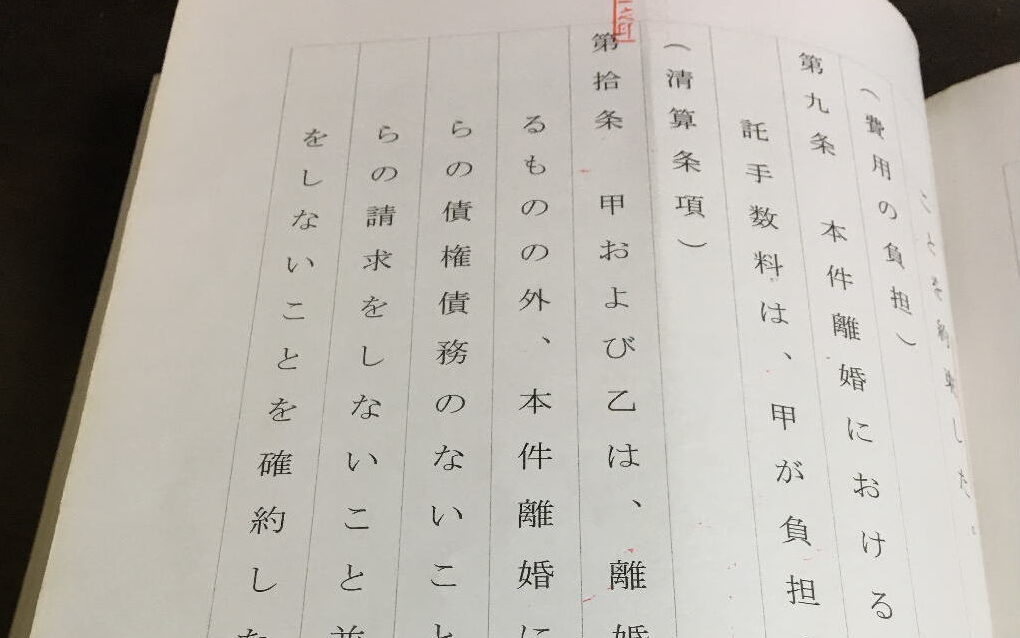 ことを約束した。
(費用の負担)
第九条　本件離婚における
託手数料は、甲が負担
(清算条項)
第拾条　甲および乙は、離婚
るものの外、本件離婚に
らの債権債務のないこと
らの請求をしないこと並
をしないことを確約し